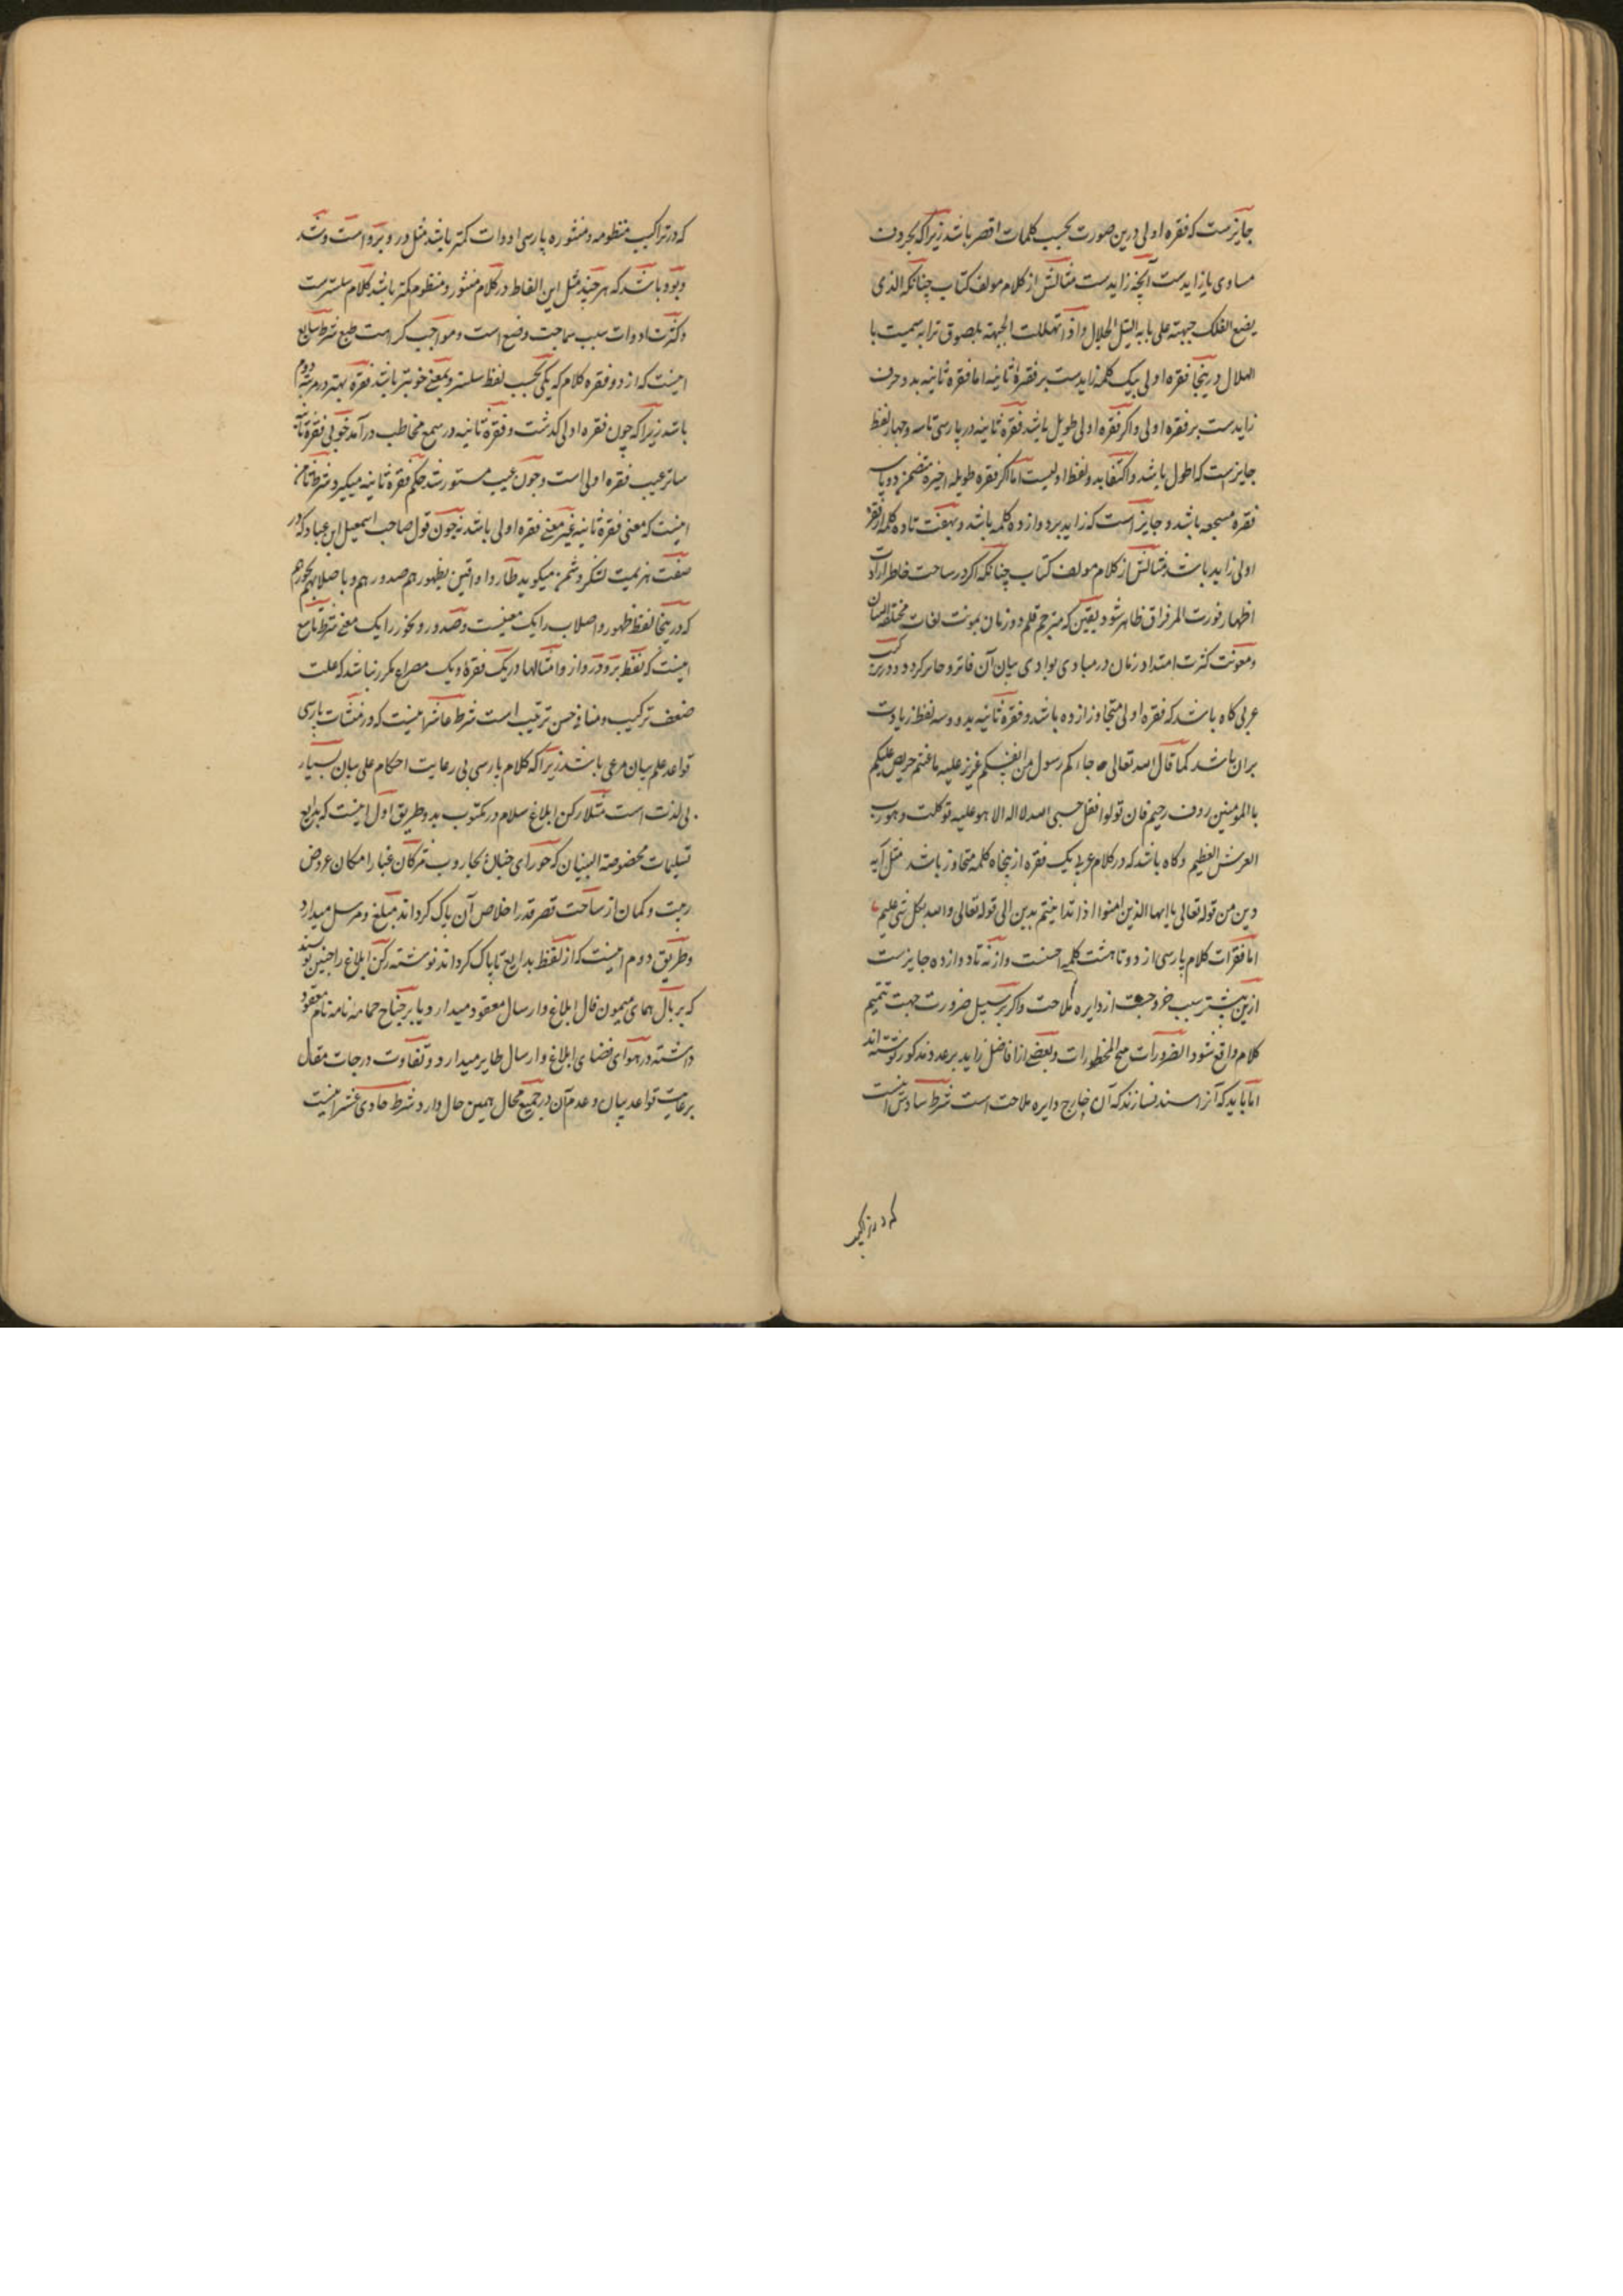 جایزست که فقره اولی درین صورت بحسب کلمات اقصر باشد زیراکه بحروف
مساوی یا زایدست آنچه زایدست مثالش از کلام مولف کتاب چنانکه الذی
یضع الفلک جبهته علی بابه لنیل الجلال واذا تهللت الجبهة بلصوق ترابه سمیت با
الهلال درینجا فقره اولی بیک کلمه زایدست بر فقره ثانیه اما فقره ثانیه بدو حرف
زایدست بر فقره اولی واکر فقره اولی طویل باشد فقره ثانیه در پارسی تا سه و چهار لفظ
جایزست که اطول باشد واکتفا بدو لفظ اولیست اما اکر فقره طویله اخیره متضمن دو یا سه
فقره مسجعه باشد و جایز است که زاید بر دوازده کلمه باشد و بهفت تا ده کلمه از فقره
اولی زاید باشد مثالش از کلام مولف کتاب چنانکه اکر در ساحت خاطر ارادت
اظهار فورت الم فراق ظاهر شود یقین که مترجم قلم دو زبان بمونت لغات مختلفه اللسان
ومعونت کثرت امتداد زمان در مبادی بوادی بیان آن فاتر و حایر کردد و در
عربی کاه باشد که فقره اولی متجاوز از ده باشد و فقره ثانیه بدو و سه لفظ زیادت
بران باشد کما قال الله تعالی جاءکم رسول من انفسکم عزیز علیه ما عنتم حریص علیکم
بالمومنین روف رحیم فان تولوا فقل حسبی الله لا اله الا هو علیه توکلت و هو رب
العرش العظیم وکاه باشد که در کلام عربی یک فقره از پنجاه کلمه متجاوز باشد مثل آیه
دین من قوله تعالی یا ایها الذین امنوا اذا تداینتم بدین الی قوله تعالی والله بکل شی علیم
اما فقرات کلام پارسی از دو تا هشت کلمه احسنت واز نه تا دوازده جایزست
ازین بیشتر سبب خروجست از دایره ملاحت واکر بر سبیل ضرورت جهت تتمیم
کلام واقع شود الضرورات تبیح المحظورات و بعضی از افاضل زاید بر عدد مذکور نوشته اند
اما باید که آنرا سند نسازند که آن خارج دایره ملاحت است شرط سادس اینست
که در تراکیب
که در تراکیب منظومه و منثوره پارسی ادوات کمتر باشد مثل در و بر و است و شد
و بود و باشد که هر چند مثل این الفاظ در کلام منثور و منظوم کمتر باشد کلام سلسترست
وکثرت ادوات سبب سماجت وضع است و مواجب کراهت طبع شرط سابع
اینست که از دو فقره کلام که یکی بحسب لفظ سلستر و بمعنی خوبتر باشد فقره بهتر در مرتبه دوم
باشد زیراکه چون فقره اولی کذشت و فقره ثانیه در سمع مخاطب درآمد خوبی فقره ثانیه
ساتر عیب فقره اولی است و چون عیب مستور شد حکم فقره ثانیه میکیرد شرط ثامن
اینست که معنی فقره ثانیه غیر معنی فقره اولی باشد نه چون قول صاحب اسمعیل ابن عباد که در
صفت هزیمت لشکر دشمن میکوید طاروا واقین بظهورهم صدورهم و باصلابهم نحورهم
که درینجا لفظ ظهور و اصلاب را یک معنیست و صدور و نحور را یک معنی شرط تاسع
اینست که لفظ بر و در و از و امثالها در یک فقره و یک مصراع مکرر نباشد که علت
ضعف ترکیب و منافی حسن ترتیب است شرط عاشر اینست که در منشآت پارسی
قواعد علم بیان مرعی باشد زیراکه کلام پارسی بی رعایت احکام علم بیان بسیار
بی لذت است مثلا رکن ابلاغ سلام در مکتوب بدو طریق اول اینست که بدایع
تسلیمات مخصوصة البنیان که حورای جنان بجاروب مژکان غبار امکان عروض
ریبت و کمان از ساحت قصر قدر اخلاص آن پاک کرداند مبلغ و مرسل میدارد
وطریق دوم اینست که از لفظ بدایع تا پاک کرداند نوشته رکن ابلاغ را چنین نویسند
که بر بال همای میمون فال ابلاغ و ارسال معقود میدارد و یا بر جناح حمامه نامه نام معقود
داشته در هوای فضای ابلاغ و ارسال طایر میدارد و تفاوت درجات مقال
برعایت قواعد بیان و عدم آن در جمیع محال همین حال دارد شرط حادی عشر اینست